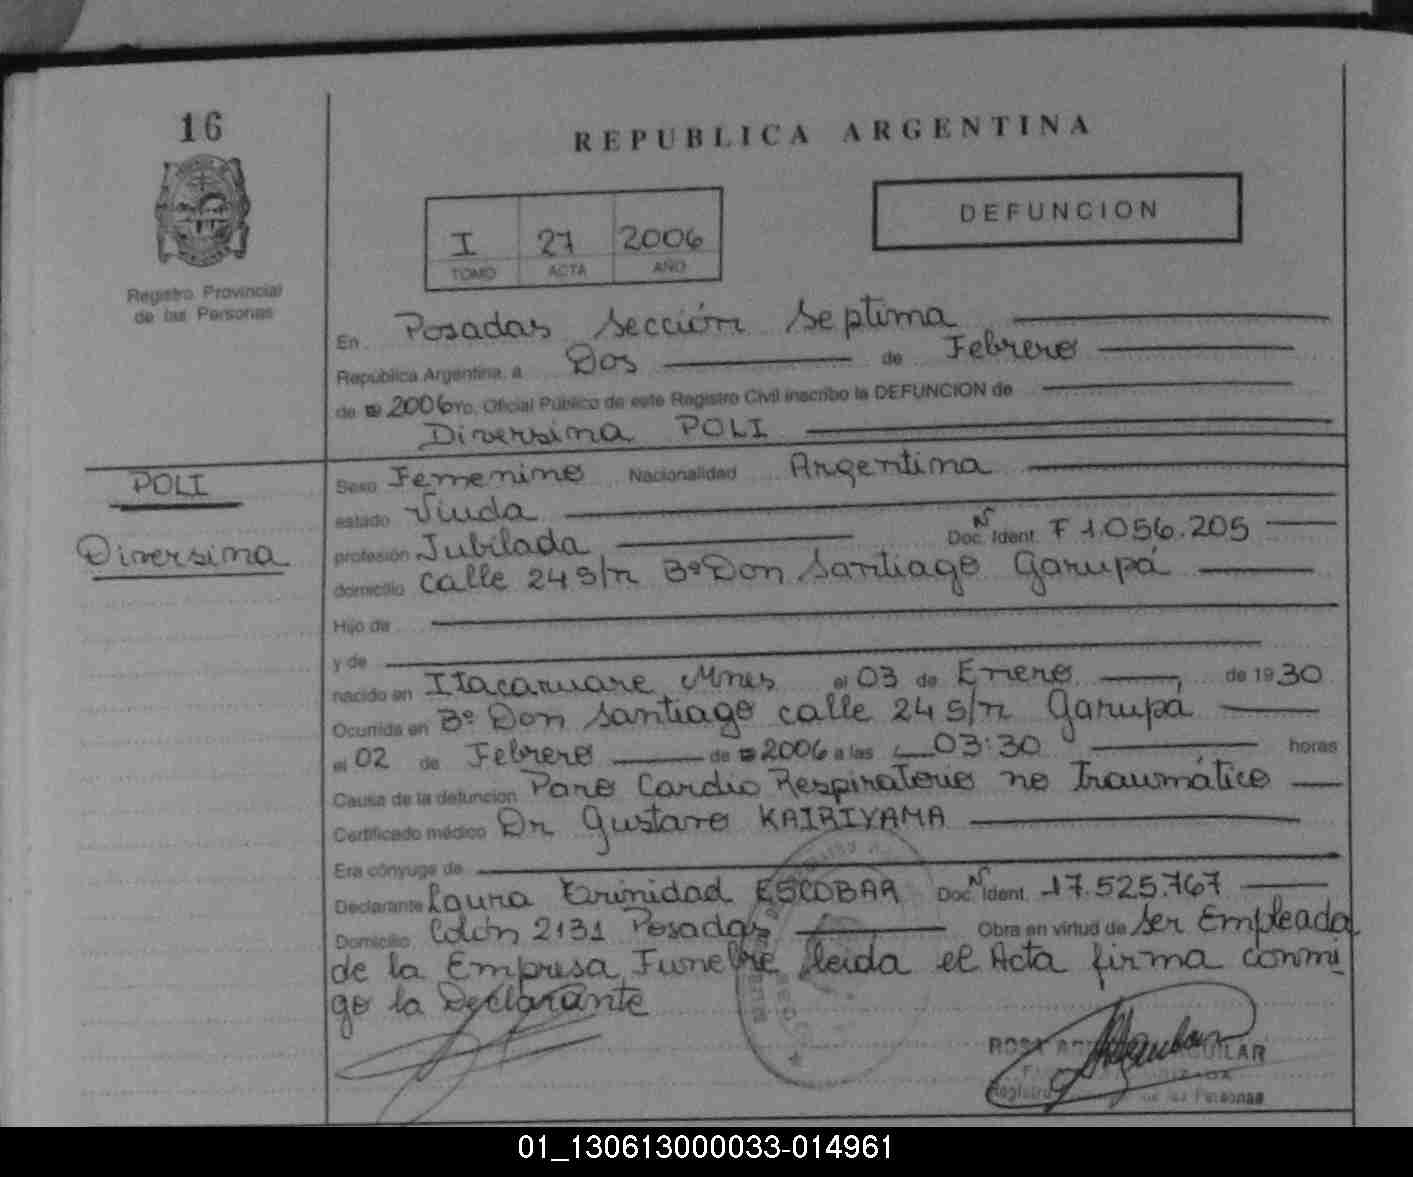 16
REPUBLICA ARGENTINA
DEFUNCION
I 27 2006
TOMO ACTA AÑO
Registro Provincial
de las Personas
En Posadas Sección Septima
República Argentina, a Dos de Febrero
de 2006 Yo, Oficial Público de este Registro Civil inscribo la DEFUNCION de
Diversina POLI
POLI
Diversina
Sexo Femenino Nacionalidad Argentina
estado Viuda
profesión Jubilada Doc. Ident. Nº F 1.056.205
domicilio calle 24 S/n Bº Don Santiago Garupá
Hijo de
y de
nacido en Itacaruare Mnes el 03 de Enero de 1930
Ocurrida en Bº Don Santiago calle 24 S/n Garupá
el 02 de Febrero de 2006 a las 03:30 horas
Causa de la defunción Paro Cardio Respiratorio no Traumático
Certificado médico Dr Gustavo KAIRIYAMA
Era cónyuge de
Declarante Laura Trinidad ESCOBAR Doc. Ident. Nº 17.525.767
Domicilio Colón 2131 Posadas Obra en virtud de Ser Empleada
de la Empresa Funebre leida el Acta firma conmi
go la Declarante
ROSA AGUILAR
Registro de las Personas
01_130613000033-014961